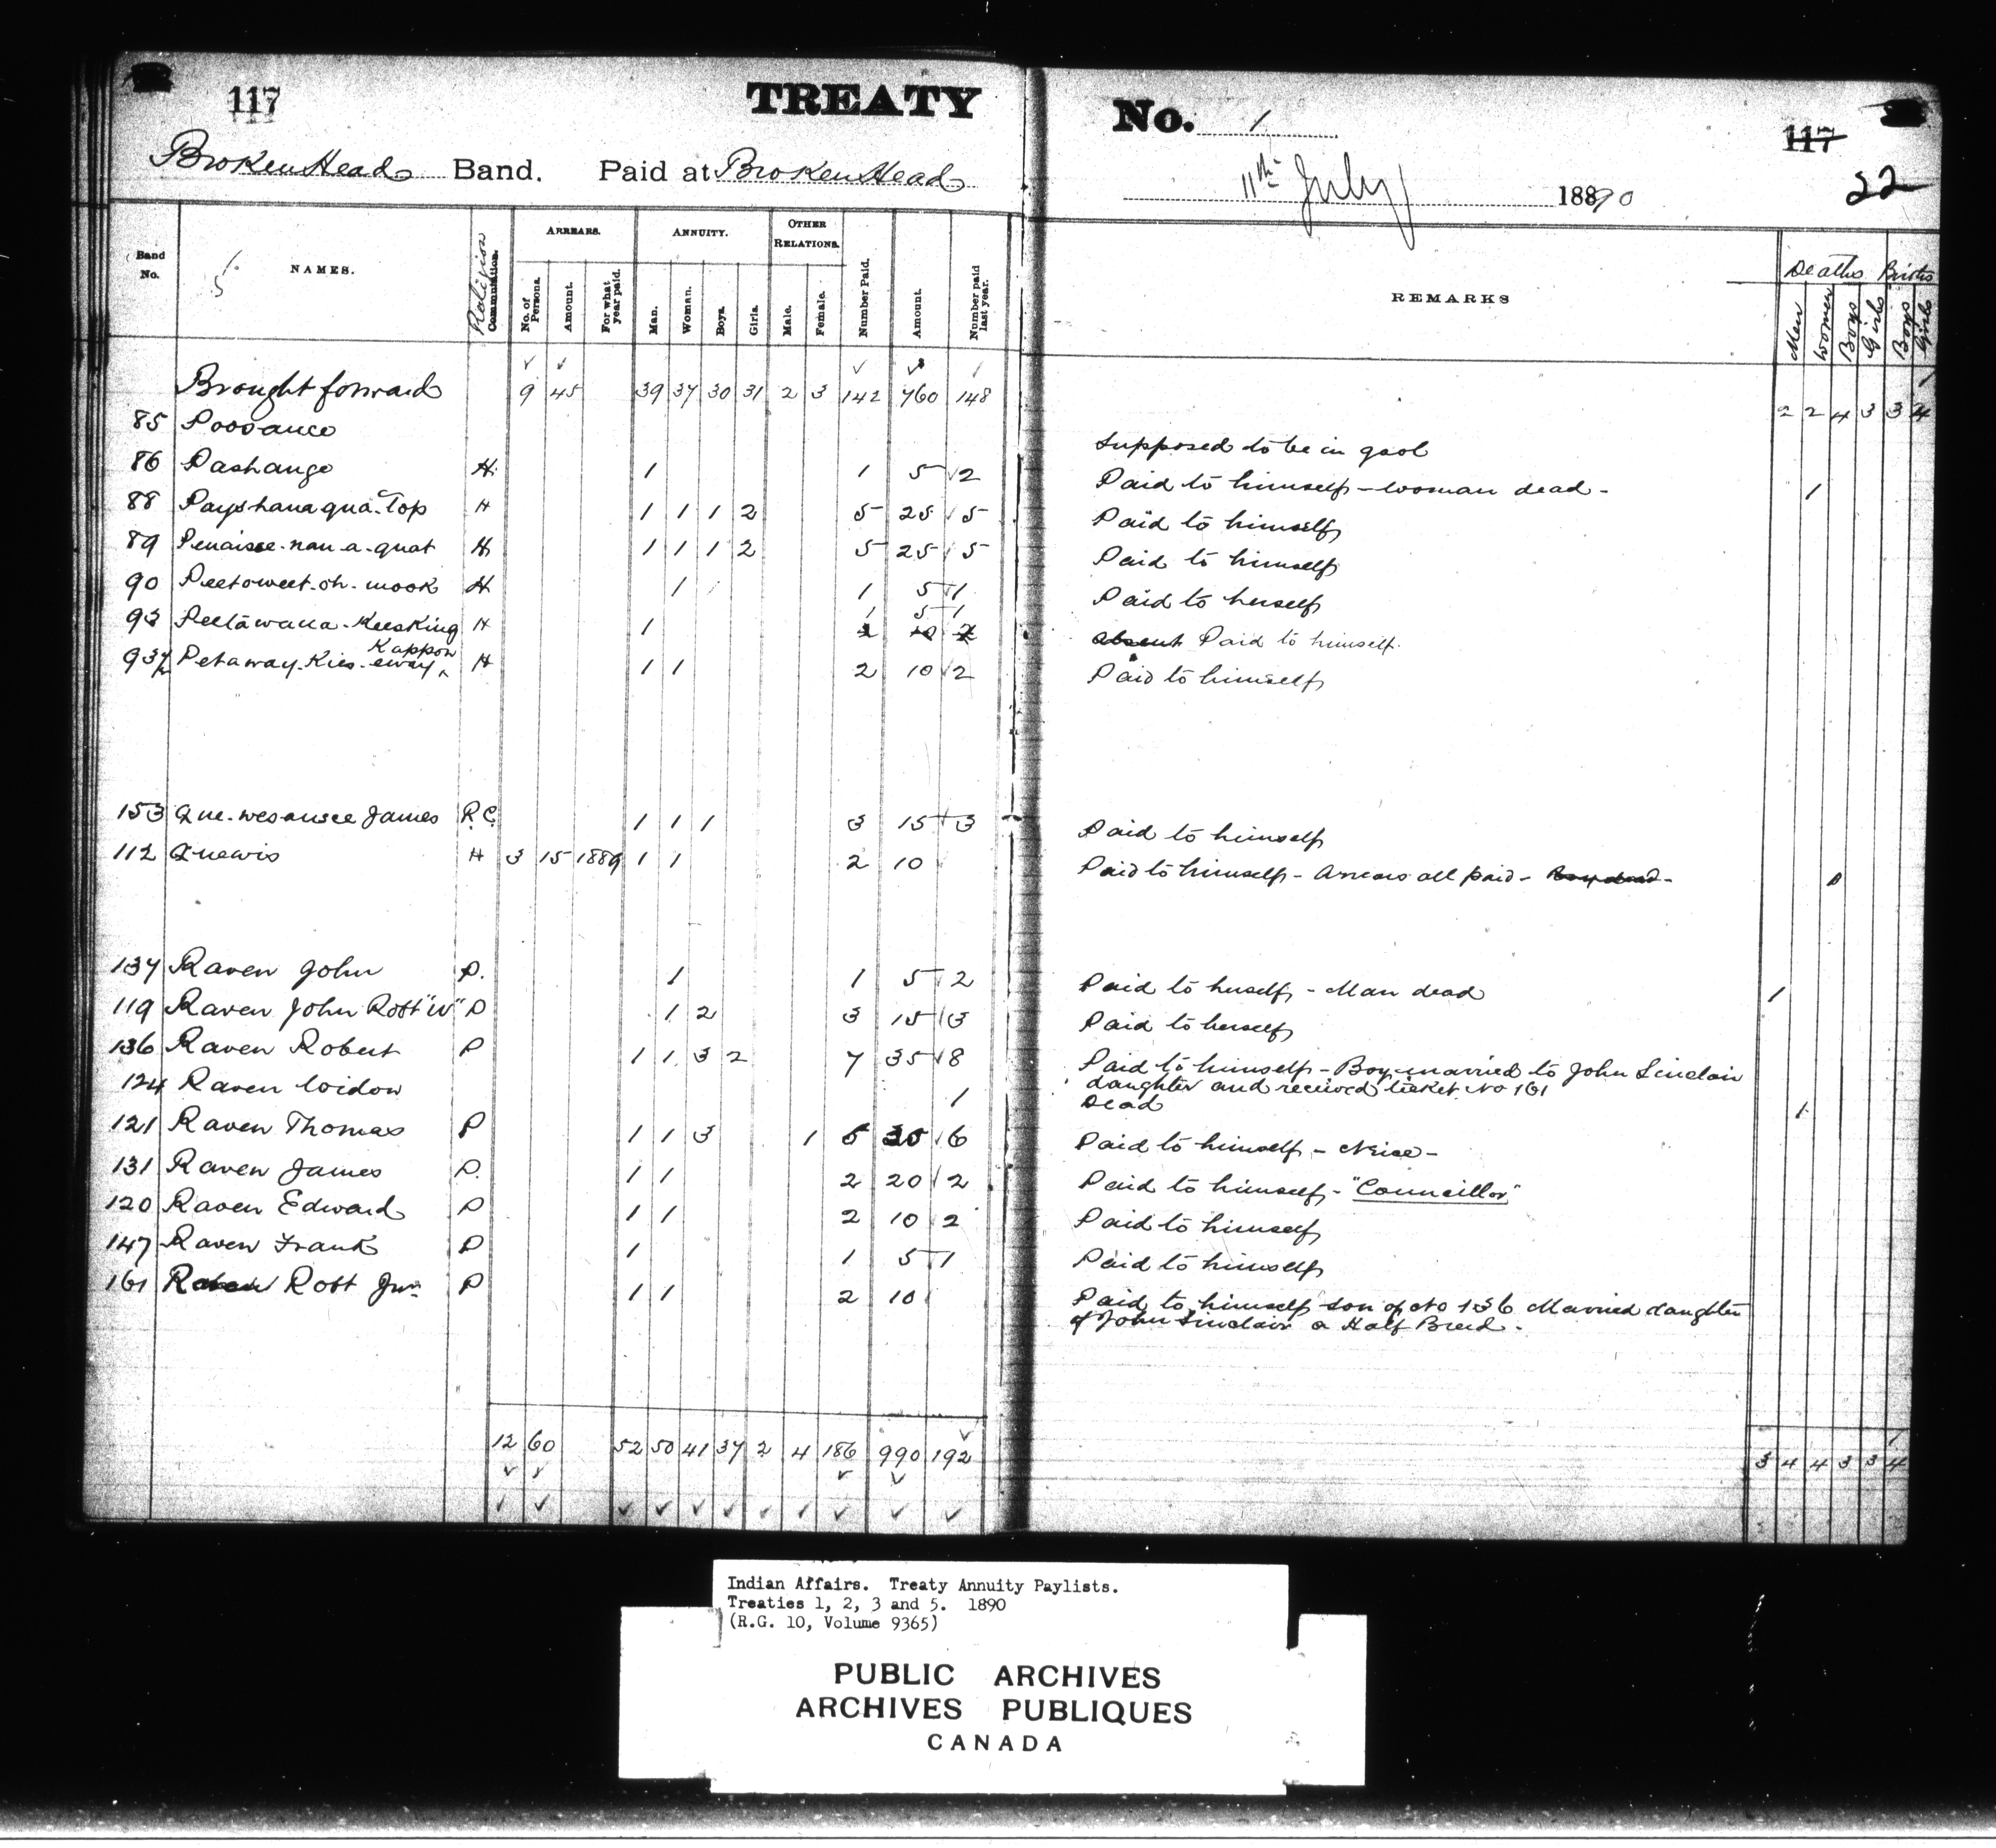 117 TREATY No. 1 117
BrokenHead Band. Paid at BrokenHead 11th July 18890 22
Band No. NAMES. Religion Commutation. ARREARS. ANNUITY. OTHER RELATIONS. Number Paid. Amount. Number paid last year. REMARKS Deaths Births
No. of Persons. Amount. For what year paid. Man. Woman. Boys. Girls. Male. Female. Men Women Boys Girls Boys Girls
Brought forward 9 45 39 37 30 31 2 3 142 760 148 2 2 4 3 3 4
85 Poosance Supposed to be in gaol
86 Pashange H 1 1 5 2 Paid to himself - woman dead - 1
88 Payshanaqua-Top H 1 1 1 2 5 25 5 Paid to himself
89 Penaisse-nan-a-quat H 1 1 1 2 5 25 5 Paid to himself
90 Peetoweet-oh-mook H 1 1 5 1 Paid to herself
93 Peetawana-KeesKing H 1 1 5 1 absent Paid to himself.
Kappow
93½ Petaway-Kies-eway H 1 1 2 10 2 Paid to himself
153 Que-wesansee James R.C. 1 1 1 3 15 3 Paid to himself
112 Quewis H 3 15 1889 1 1 2 10 Paid to himself - Arrears all paid - Boy dead -
137 Raven John P. 1 1 5 2 Paid to herself - Man dead 1
119 Raven John Robt "W" P 1 2 3 15 3 Paid to herself
136 Raven Robert P 1 1 3 2 7 35 8 Paid to himself - Boy married to John Sinclair
daughter and received ticket No 161
124 Raven Widow 1 Dead 1
121 Raven Thomas P 1 1 3 1 6 30 6 Paid to himself - Neice -
131 Raven James P. 1 1 2 20 2 Paid to himself - "Councillor"
120 Raven Edward P 1 1 2 10 2 Paid to himself
147 Raven Frank P 1 1 5 1 Paid to himself
161 Raven Robt Jnr P 1 1 2 10 Paid to himself son of No 136 Married daughter
of John Sinclair a Half Breed.
12 60 52 50 41 37 2 4 186 990 192 3 4 4 3 3 4
Indian Affairs. Treaty Annuity Paylists.
Treaties 1, 2, 3 and 5. 1890
(R.G. 10, Volume 9365)
PUBLIC ARCHIVES
ARCHIVES PUBLIQUES
CANADA